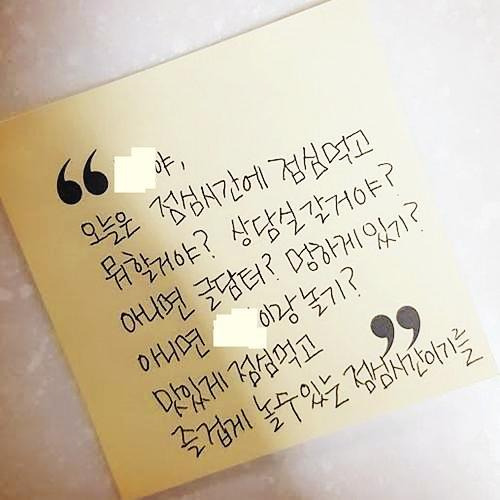 “ 야,
오늘은 점심시간에 점심먹고
뭐할거야? 상담실갈거야?
아니면 글담터? 멍하게 있기?
아니면 이랑 놀기?
맛있게 점심먹고 ”
즐겁게 놀수있는 점심시간이기를